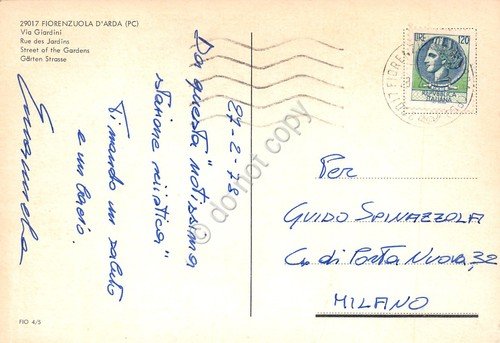 29017 FIORENZUOLA D'ARDA (PC)
Via Giardini
Rue des Jardins
Street of the Gardens
Gärten Strasse
27-2-78
Da questa "notissima
stazione sciistica"
Ti mando un saluto
e un bacio.
LIRE 120
REPUBBLICA
ITALIANA
PER
GUIDO SPINAZZOLA
C.so di Porta Nuova, 32
MILANO
FIO 4/5
do not copy